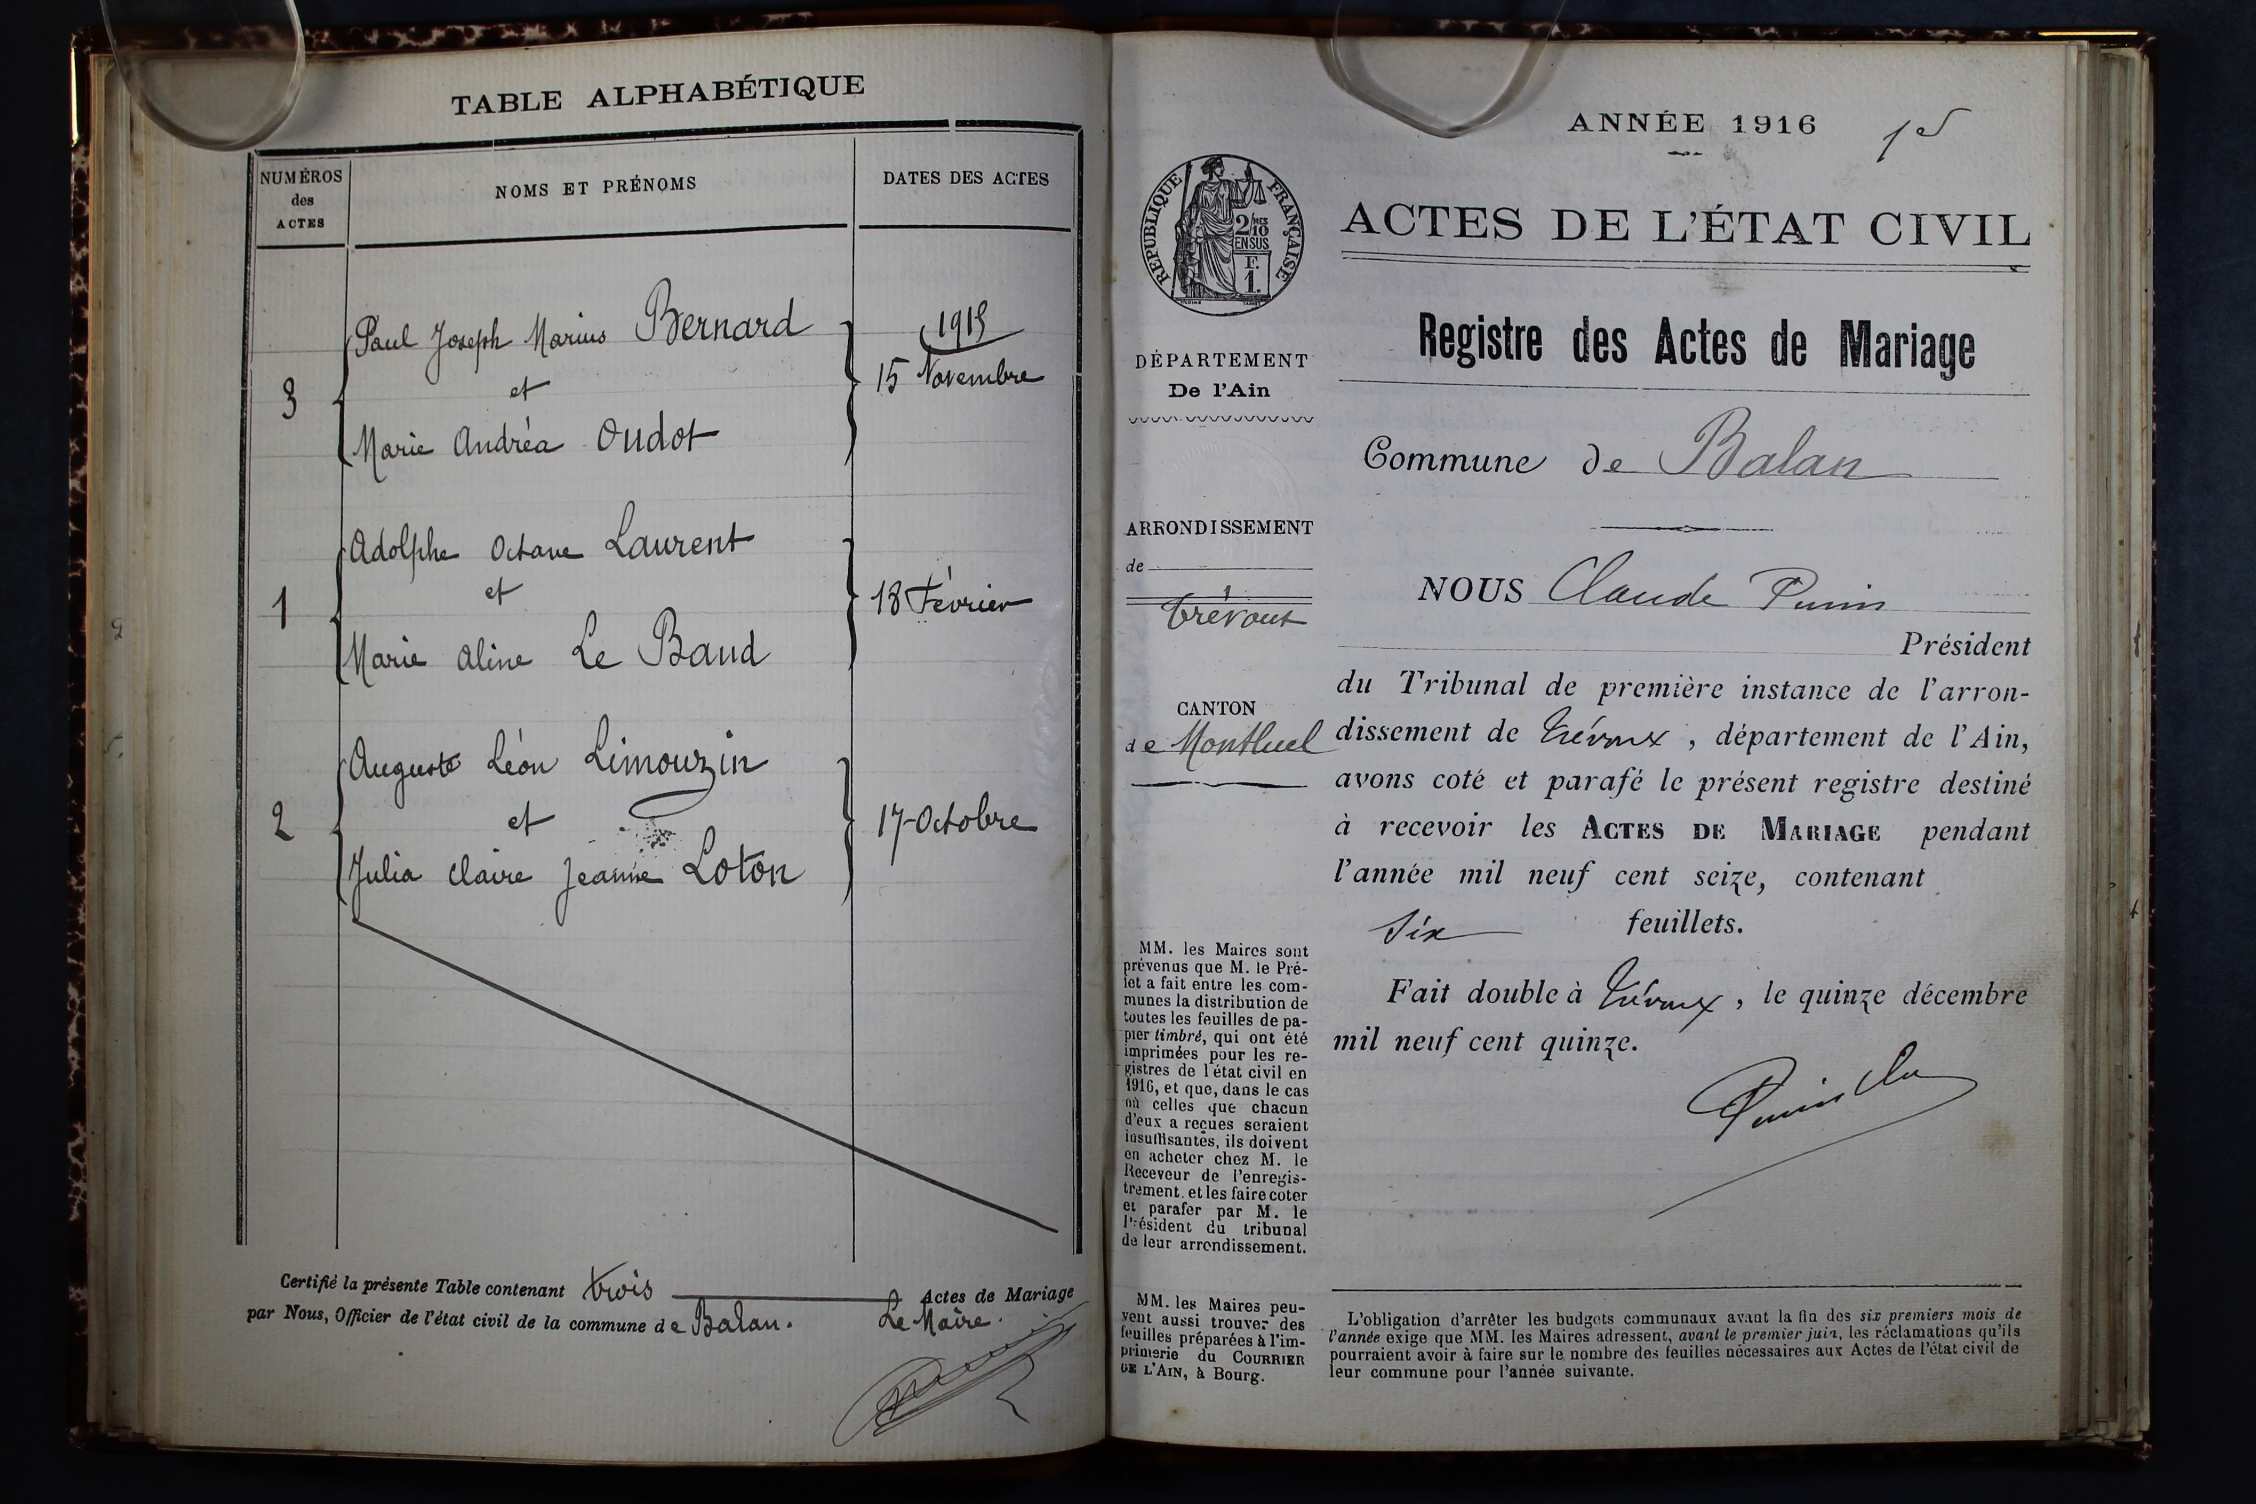 TABLE ALPHABÉTIQUE
NUMÉROS
des
ACTES
NOMS ET PRÉNOMS
DATES DES ACTES
Paul Joseph Marius Bernard
1915
3
et
15 Novembre
Marie Andréa Oudot
Adolphe Octave Laurent
1
et
18 Février
Marie Aline Le Baud
Auguste Léon Limouzin
2
et
17 Octobre
Julia Claire Jeanne Loton
Certifié la présente Table contenant trois Actes de Mariage
par Nous, Officier de l'état civil de la commune de Balan.
Le Maire.
ANNÉE 1916
1er
RÉPUBLIQUE FRANÇAISE
2/10 MES
EN SUS
F.
1.
ACTES DE L'ÉTAT CIVIL
Registre des Actes de Mariage
DÉPARTEMENT
De l'Ain
Commune de Balan
ARRONDISSEMENT
de
Trévoux
CANTON
de Montluel
NOUS Claude
Président
du Tribunal de première instance de l'arron-
dissement de Trévoux, département de l'Ain,
avons coté et parafé le présent registre destiné
à recevoir les ACTES DE MARIAGE pendant
l'année mil neuf cent seize, contenant
Six feuillets.
Fait double à Trévoux, le quinze décembre
mil neuf cent quinze.
MM. les Maires sont
prévenus que M. le Pré-
fet a fait entre les com-
munes la distribution de
toutes les feuilles de pa-
pier timbré, qui ont été
imprimées pour les re-
gistres de l'état civil en
1916, et que, dans le cas
où celles que chacun
d'eux a reçues seraient
insuffisantes, ils doivent
en acheter chez M. le
Receveur de l'enregis-
trement, et les faire coter
et parafer par M. le
Président du tribunal
de leur arrondissement.
MM. les Maires peu-
vent aussi trouver des
feuilles préparées à l'im-
primerie du COURRIER
DE L'AIN, à Bourg.
L'obligation d'arrêter les budgets communaux avant la fin des six premiers mois de
l'année exige que MM. les Maires adressent, avant le premier juin, les réclamations qu'ils
pourraient avoir à faire sur le nombre des feuilles nécessaires aux Actes de l'état civil de
leur commune pour l'année suivante.